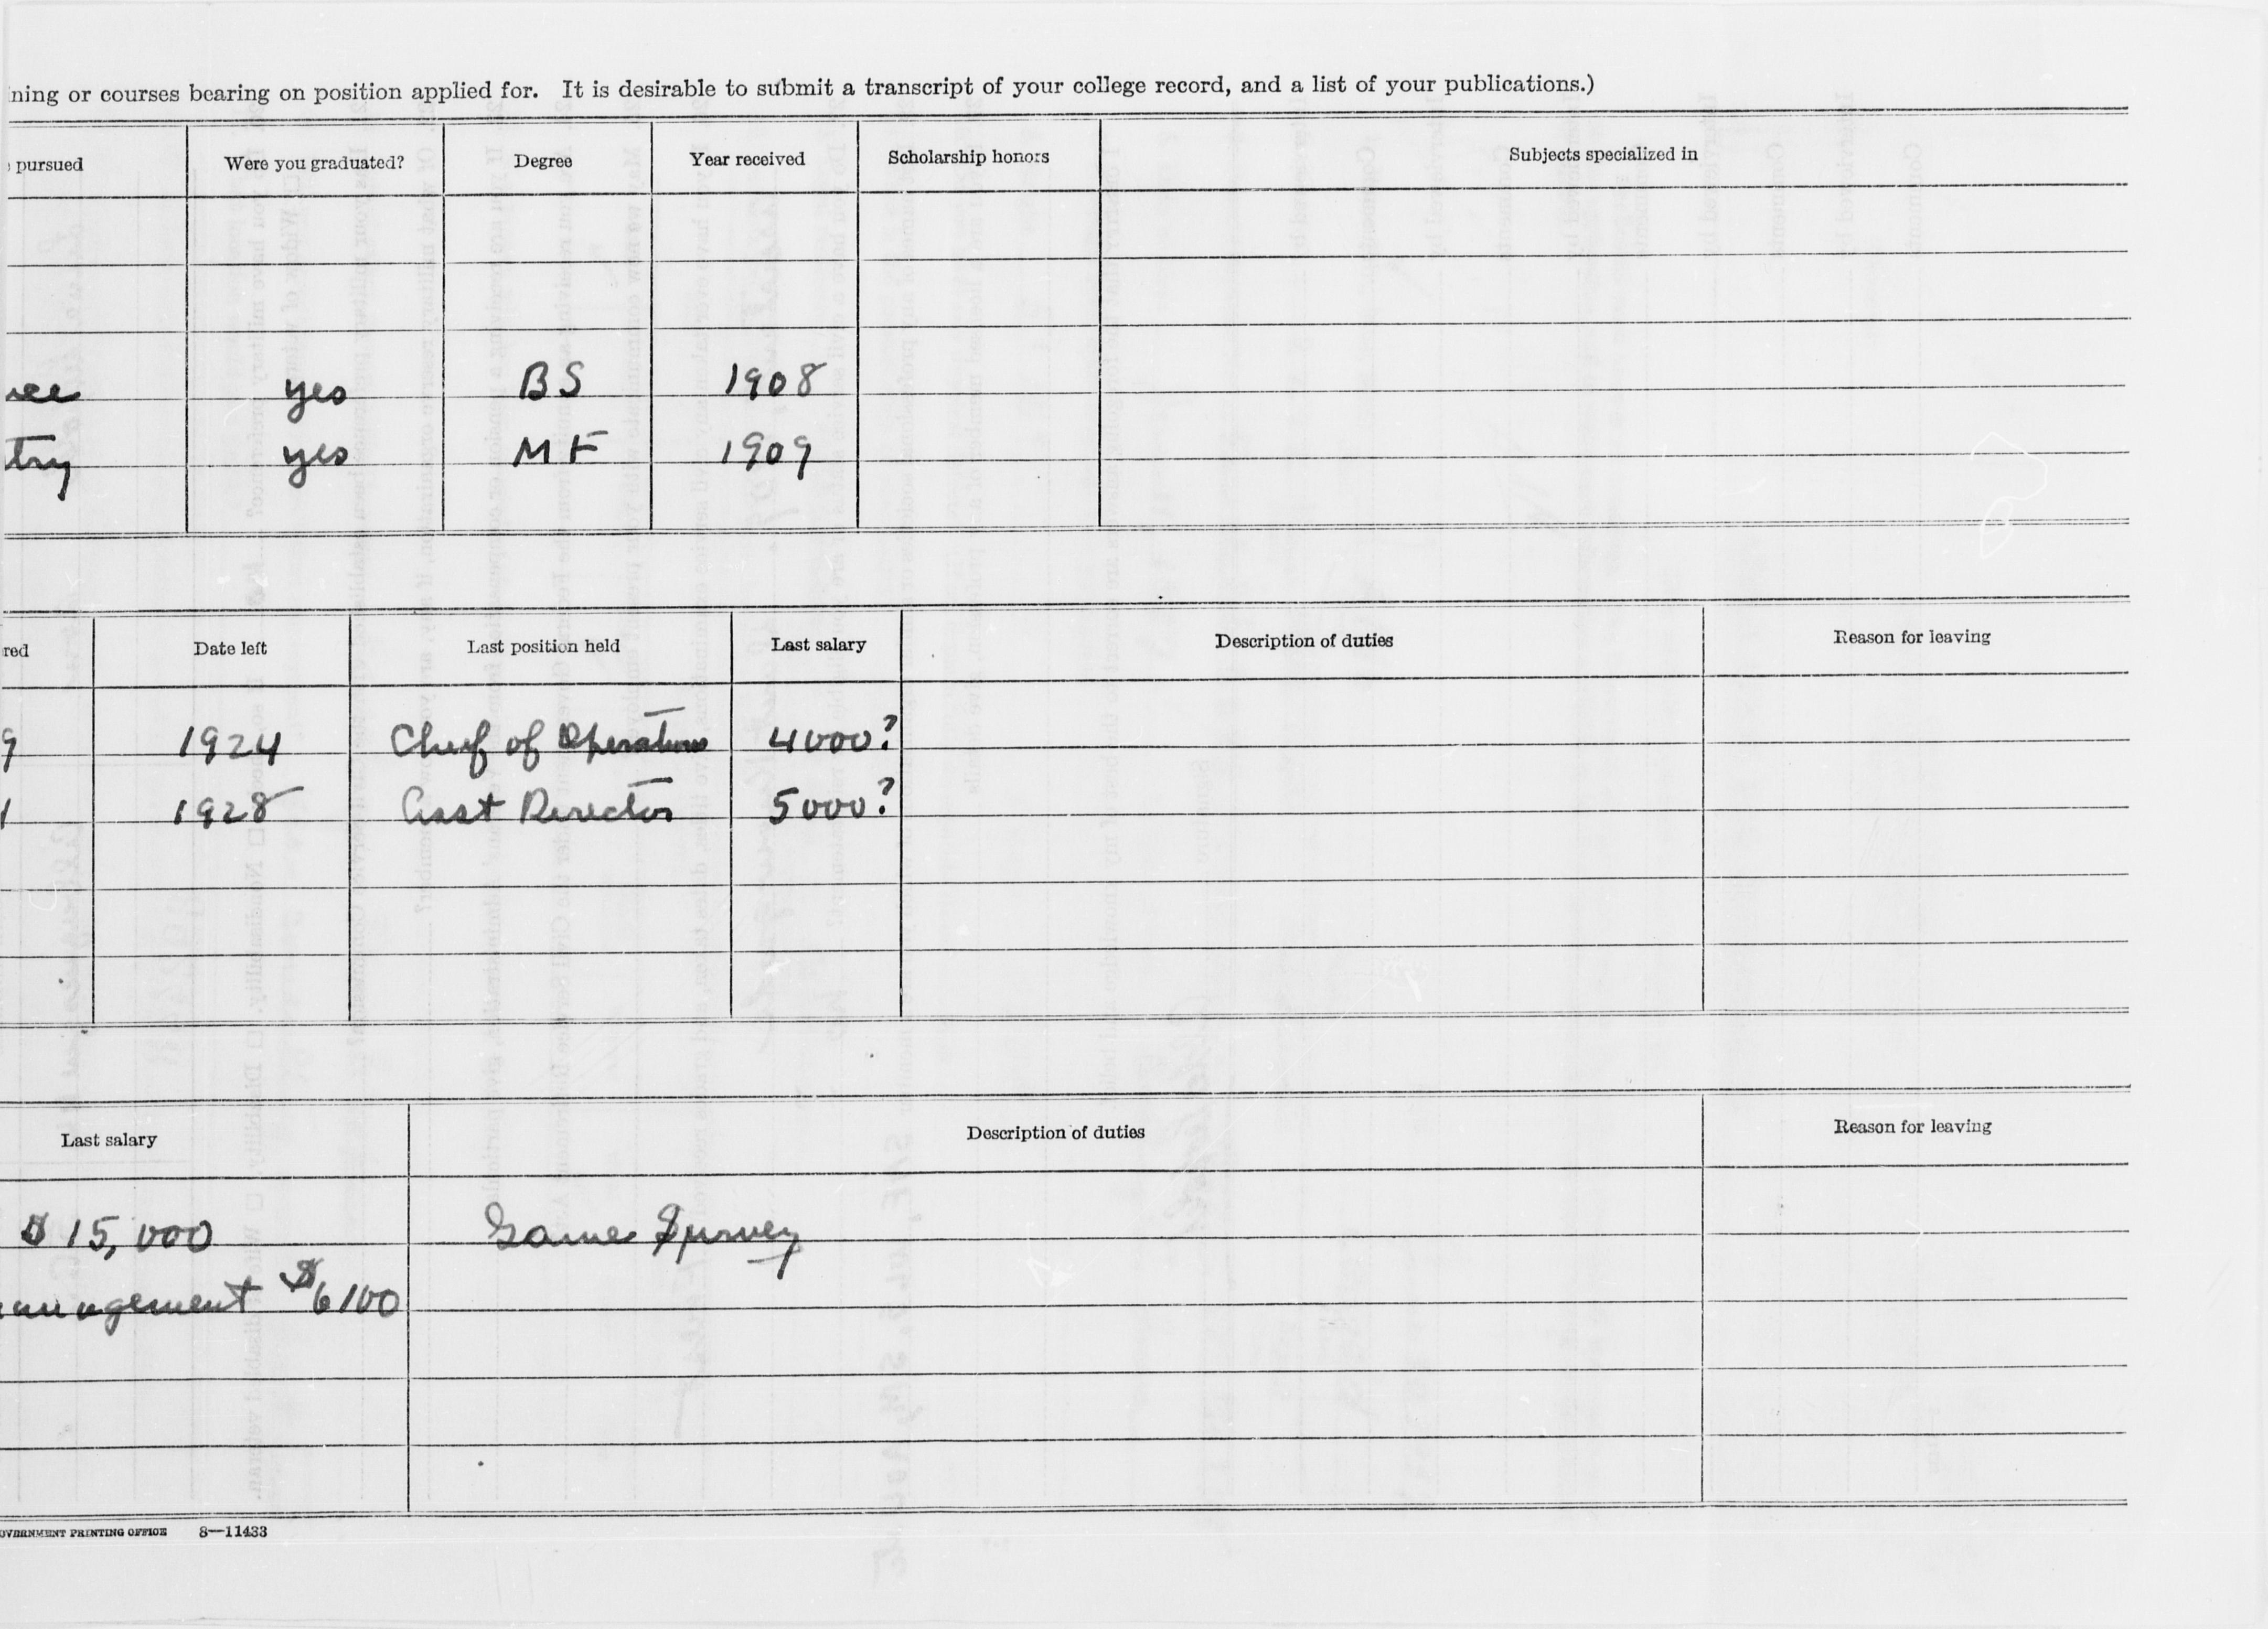 ning or courses bearing on position applied for. It is desirable to submit a transcript of your college record, and a list of your publications.)
pursued Were you graduated? Degree Year received Scholarship honors Subjects specialized in
yes BS 1908
try yes MF 1909
red Date left Last position held Last salary Description of duties Reason for leaving
9 1924 Chief of Operations 4000?
1 1928 Asst Director 5000?
Last salary Description of duties Reason for leaving
$15,000 Game Survey
anagement $6100
OVERNMENT PRINTING OFFICE 8—11433